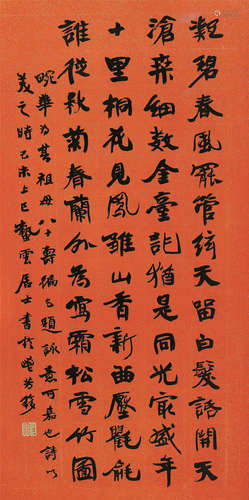 凝碧春風罷管絃天留白髮話開天
滄桒細數金臺記猶是同光最盛年
十里桐花見鳳雛山香新曲壓氍毹
誰從秋菊春蘭外為寫霜松雪竹圖
畹華為其祖母八十壽徧乞題詠意可嘉也詩以
美之時己未上巳蟄雲居士書於